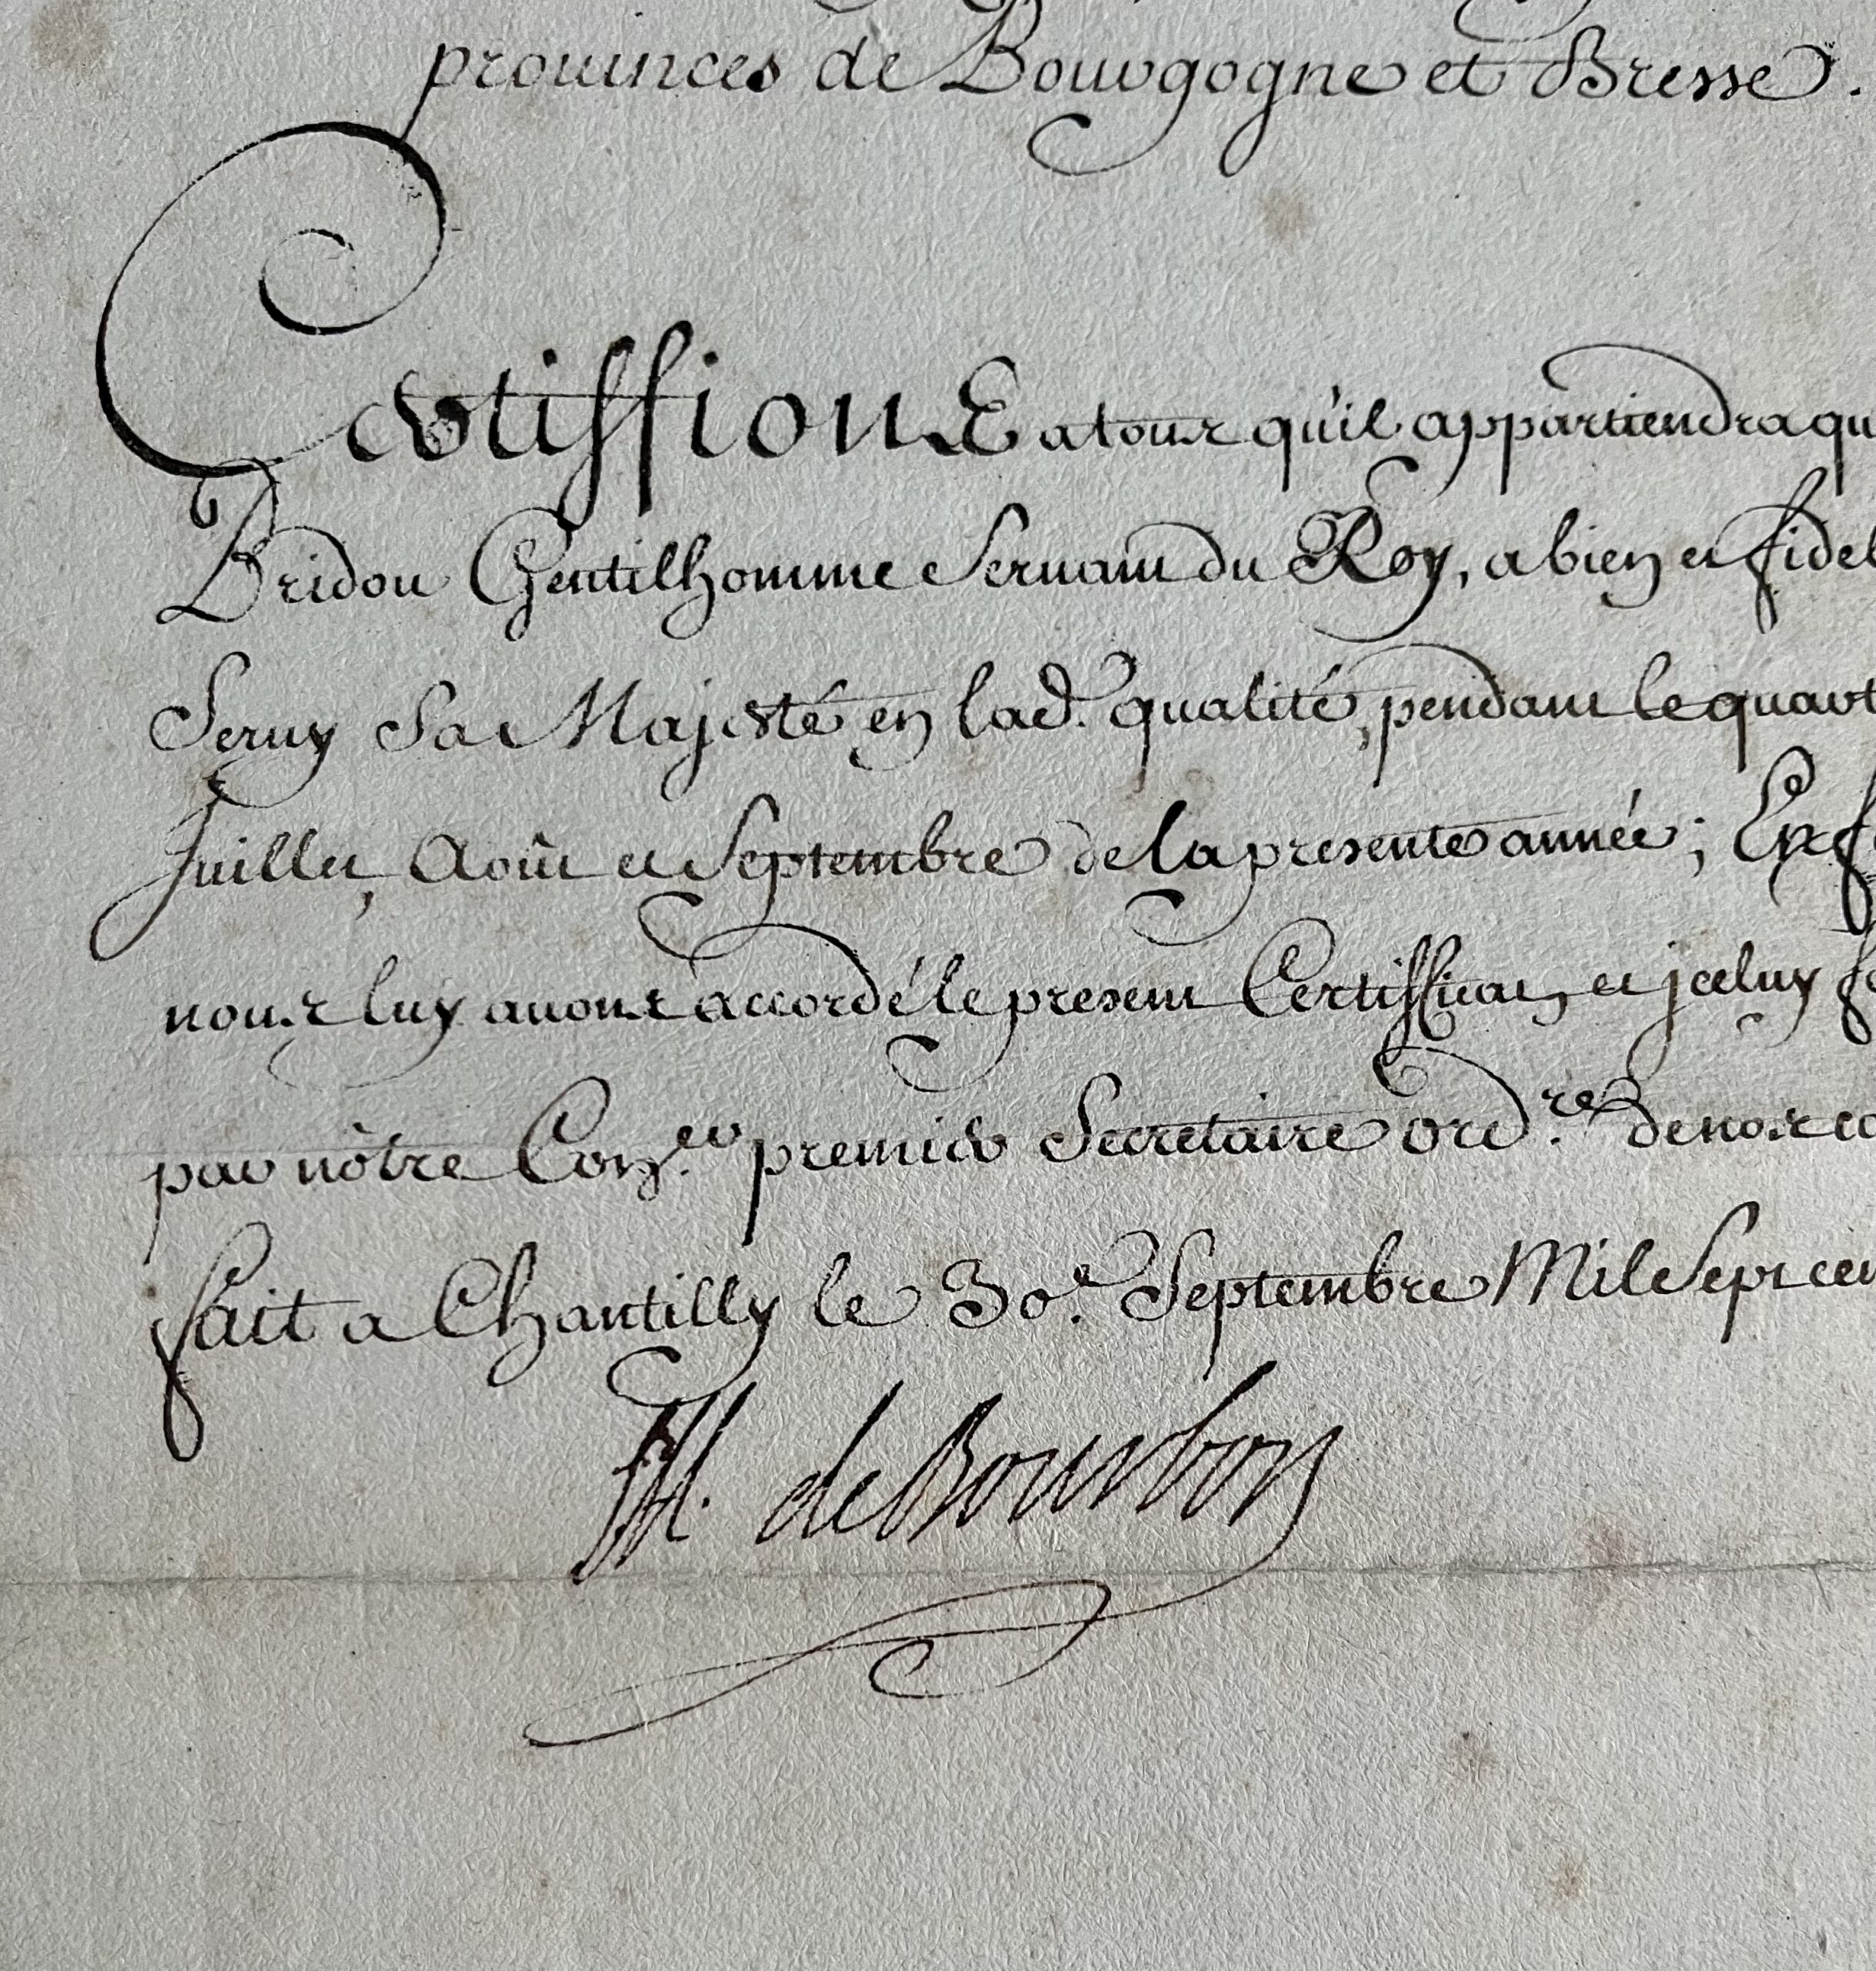 prouinces de Bourgogne et Bresse.
Certiffions a tous qu'il appartiendra qu
Bridou Gentilhomme Seruant du Roy, a bien et fidel
Seruy Sa Majesté en lad. qualité, pendant le quart
Juillet, Août et Septembre de la presente année; En f
nous luy auons accordé le present Certifficat, et jceluy f
par nôtre Con.er premier Secretaire ord.re de nos co
fait a Chantilly le 30.e Septembre Mil Sept cen
de Bourbon